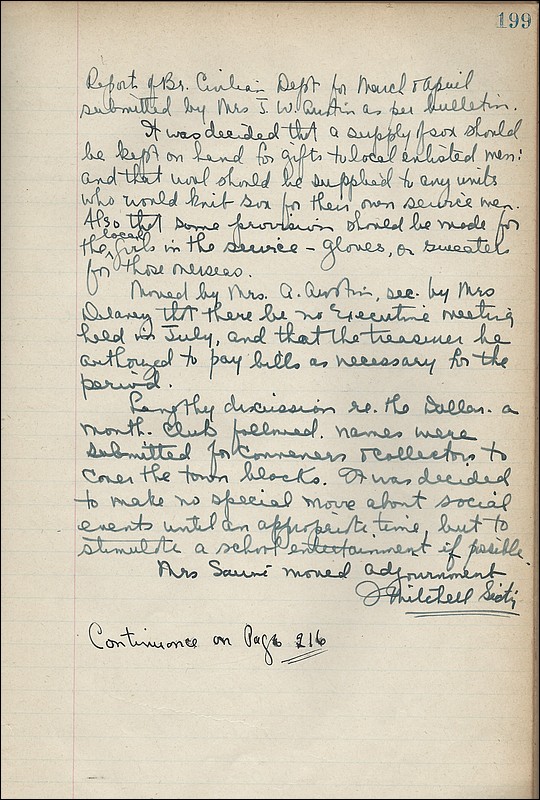 199
Report of Br. Civilian Dept for March & April
submitted by Mrs J. W. Austin as per bulletin.
It was decided that a supply of sox should
be kept on hand for gifts to local enlisted men:
and that wool should be supplied to any units
who would knit sox for their own service men.
Also that some provision should be made for
the local girls in the service - gloves, or sweaters
for those overseas.
Moved by Mrs. A. Austin, sec. by Mrs
Delaney that there be no Executive meeting
held in July, and that the treasurer be
authorized to pay bills as necessary for the
period.
Lengthy discussion re. the Dollar. a
month. club followed. names were
submitted for conveners & collectors to
cover the town blocks. It was decided
to make no special move about social
events until an appropriate time, but to
stimulate a school entertainment if possible.
Mrs moved adjournment
J Mitchell
Continuance on Page 216